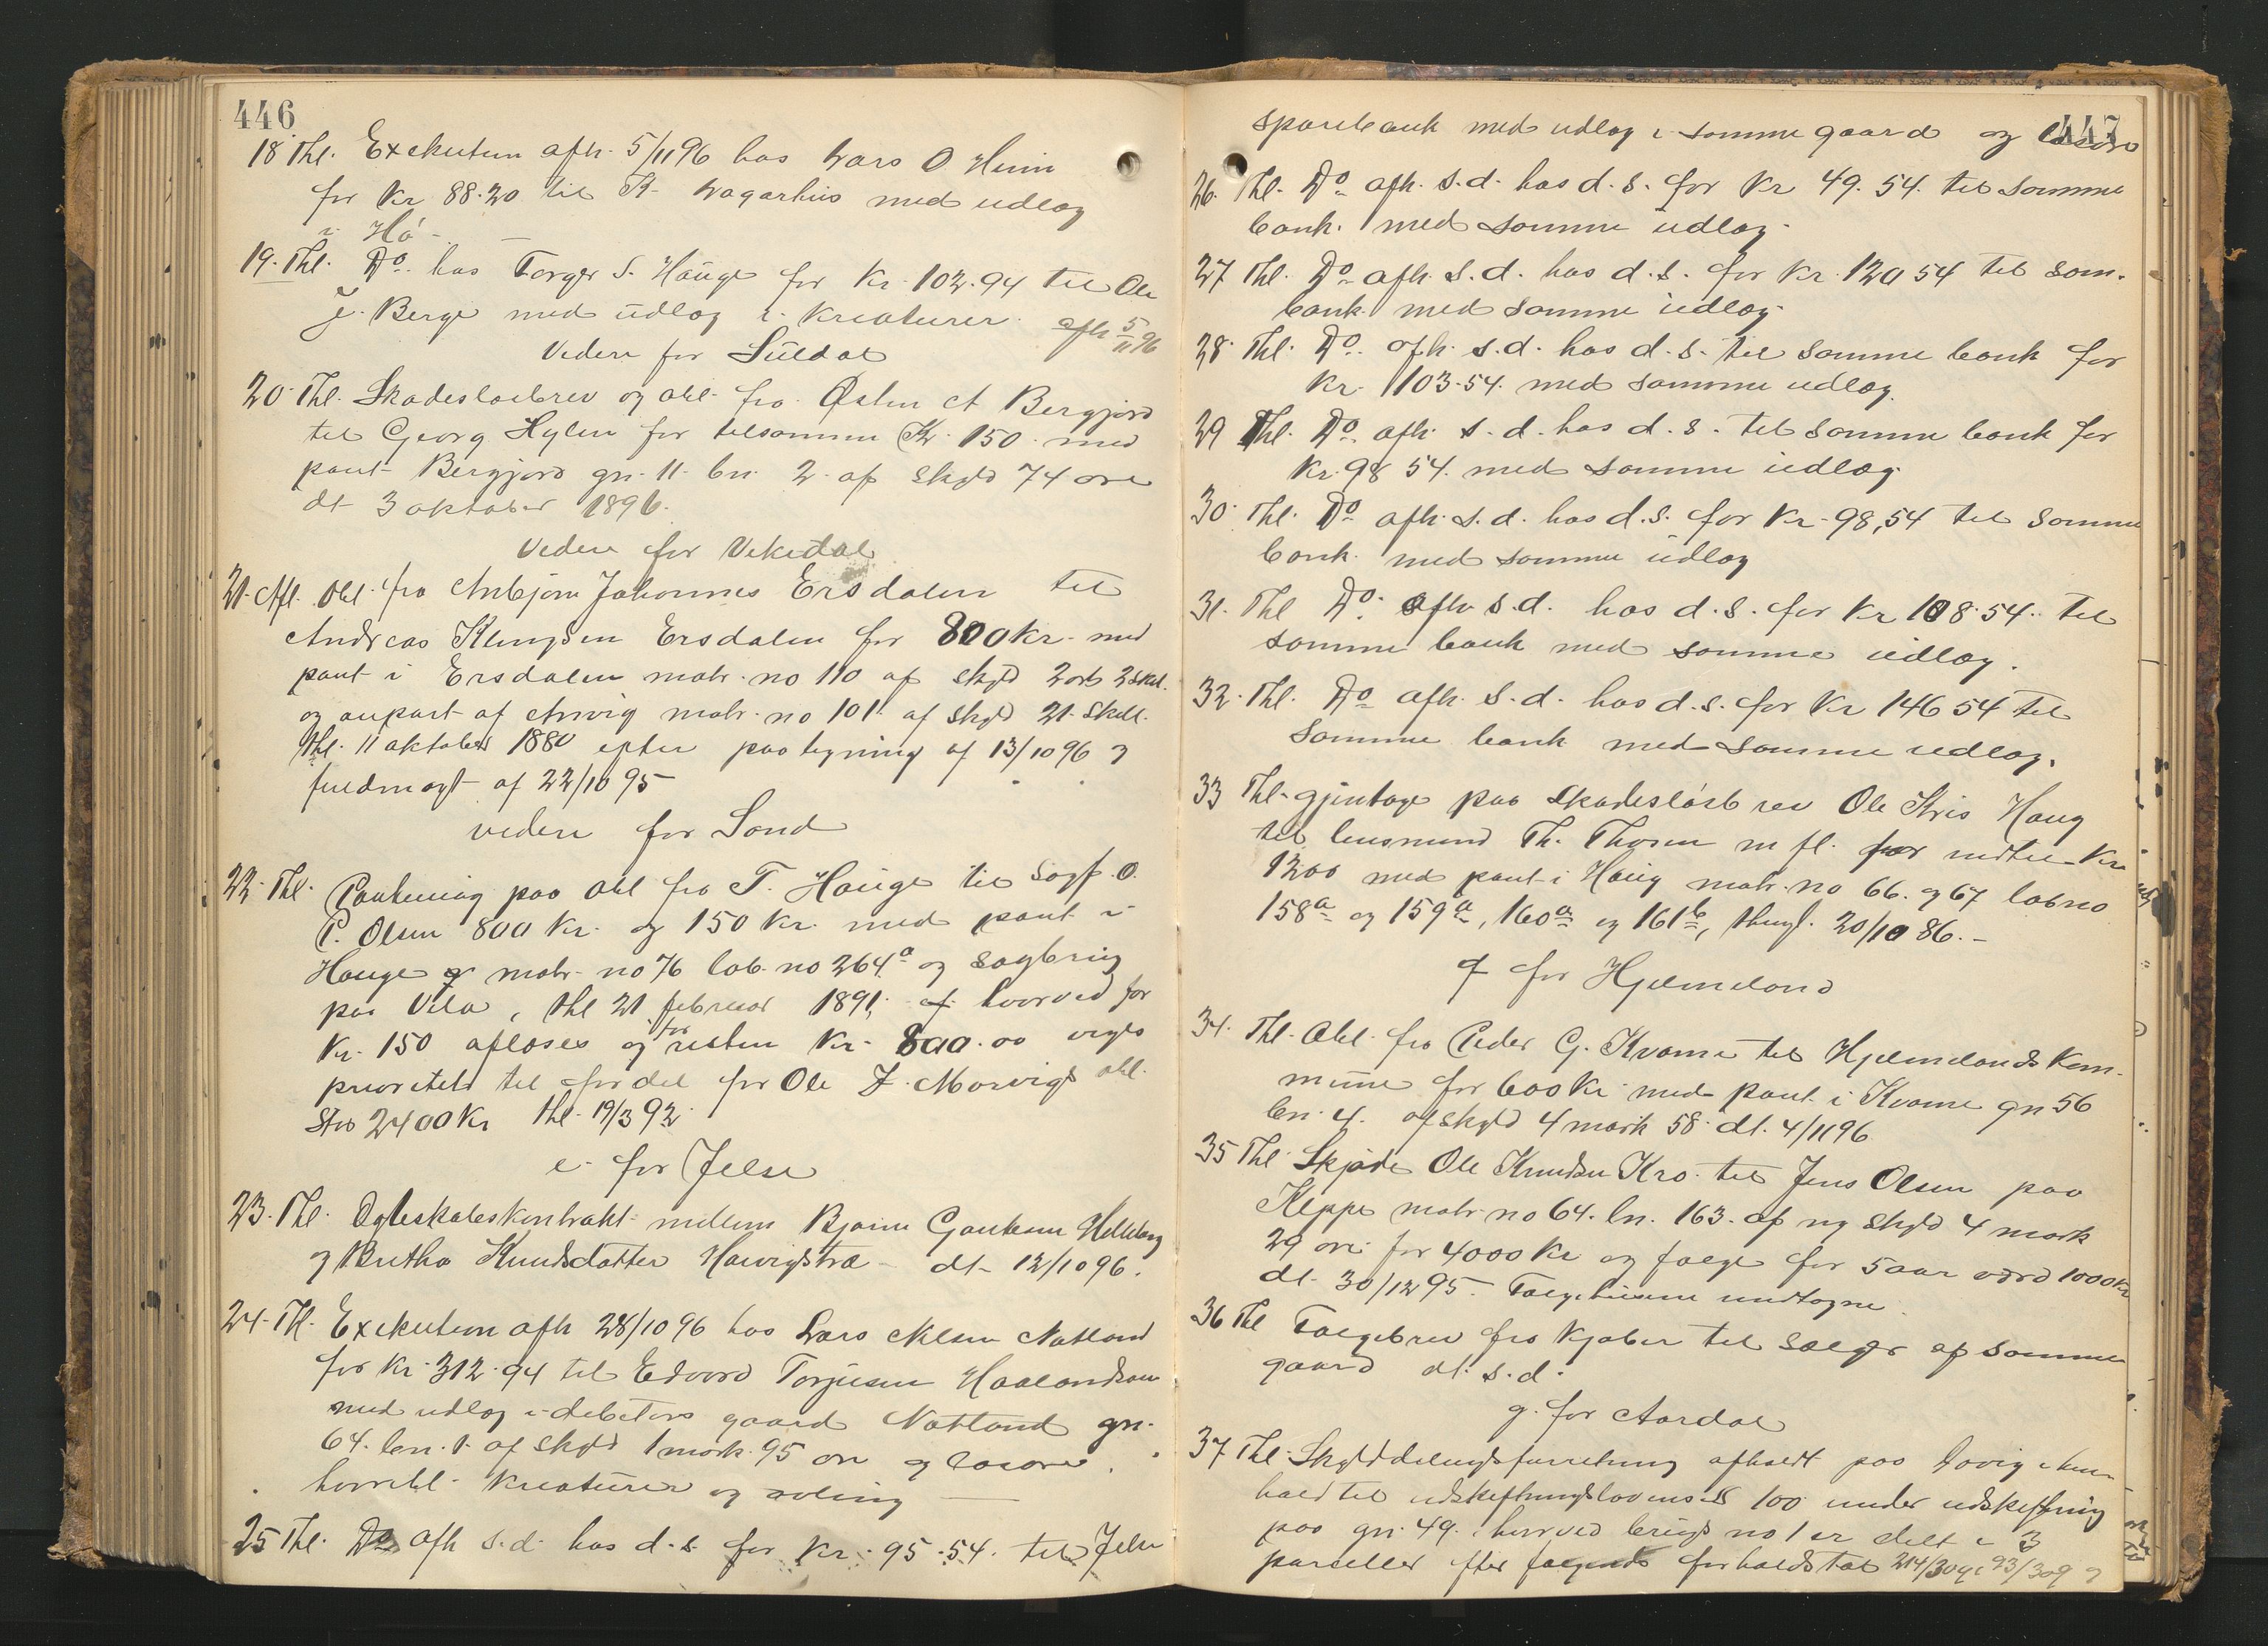 446
18 Thl. Exekution afh. 5/11 96 hos Lars O Heim
for Kr 88.20 til St. Vagarhus med udlæg
i Hø -
19. Thl. Do. hos Torger S. Hauge for Kr. 102.94 til Ole
J. Berge med udlæg i kreaturer. afh 5/11 96
Videre for Suldal
20. Thl. Skadesløsbrev og obl. fra Østen A Bergjord
til Georg Hylen for tilsammen Kr. 150 med
pant Bergjord gn. 11 bn. 2. af skyld 74 øre
dt 3 oktober 1896.
Videre for Vikedal
21. Afl. Obl. fra Anbjørn Johannes Ersdalen til
Andreas Klungsen Ersdalen for 800 kr. med
pant i Ersdalen matr. no 110 af skyld 2 ort 2 skil.
og anpart af Anvig matr. no 101 af skyld 21 skill.
thl. 11 oktober 1880 efter paategning af 13/10 96 og
fuldmagt af 22/10 95
videre for Sand
22. Thl. paa obl fra T. Hauge til Sagf. O.
P. Olsen 800 Kr. og 150 kr. med pant i
Hauge matr. no 76 løb. no 264a og sagbrug
paa Vela, thl 21 februar 1891, hvorved for
Kr. 150 afløses og for resten Kr. 800.00 viges
prioritets til fordel for Ole J. Morvigs obl.
stor 2400 Kr thl. 19/3 92.
e. for Jelse
23. Thl. Egteskabskontrakt mellem Bjarne Gautesen
og Bertha Knudsdatter dt. 12/10 96.
24. Thl. Exekution afh 28/10 96 hos Lars Nilsen Natland
for Kr. 312.94 til Edvard Torjusen Haalandsen
med udlæg i debitors gaard Natland gn.
64. bn. 1. af skyld 1 mark 95 øre og løsøre,
kreaturer og avling
25 Thl. Do afh s.d. hos d.s. for Kr. 95.54. til Jelse
447
sparebank med udlæg i samme gaard og løsøre
26. Thl. Do afh. s.d. hos d.s. for Kr 49.54. til samme
bank. med samme udlæg.
27 Thl. Do afh. s.d. hos d.s. for Kr. 120 54 til sam.
bank. med samme udlæg.
28. Thl. Do. afh. s.d. hos d.s. til samme bank for
Kr. 103.54. med samme udlæg.
29 Thl. Do. afh. s.d. hos d.s. til samme bank for
Kr. 98 54. med samme udlæg
30. Thl. Do afh. s.d. hos d.s. for Kr. 98,54 til samme
bank. med samme udlæg
31. Thl Do. afh s.d. hos d.s. for Kr 108.54. til
samme bank med samme udlæg.
32. Thl. Do afh. s.d. hos d.s. for Kr 146 54 til
samme bank med samme udlæg.
33 Thl. gjentage paa skadesløsbrev Ole Kris Haug
til lensmand Th. Thorsen m fl. for indtil Kr
1200 med pant i Haug matr. no 66. og 67 løbno
158a og 159a, 160a og 161b, thingl. 20/10 86. -
f for Hjelmeland
34. Thl. Obl. fra Peder G. Kvame til Hjelmelands Kom-
mune for 600 Kr. med pant i Kvame gn 56
bn. 4. af skyld 4 mark 58 dt. 4/11 96
35 Thl Skjøde Ole Knudsen Kro til Jens Olsen paa
Kleppe matr. no 64. ln. 163. af ny skyld 4 mark
29 øre for 4000 Kr og folge for 5 aar værd 1000 Kr
dt. 30/12 95. undtagne.
36 Thl Folgebrev fra kjøber til sælger af samme
gaard dt. s.d.
g. for Aardal
37 Thl. Skylddelingsforretning afholdt paa i hen-
hold til udskiftningslovens § 100 under udskiftning
paa gn. 49. hvorved brugs no 1 er delt i 3
parseller efter følgende forholdstal 214/309, 93/309 og